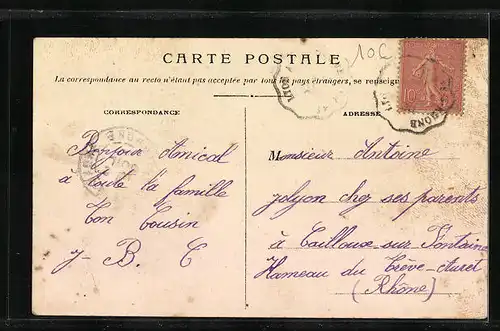 10c
CARTE POSTALE
La correspondance au recto n'étant pas acceptée par tous les pays étrangers, se renseign
CORRESPONDANCE
ADRESSE
Bonjour Amical
à toute la famille
Ton Cousin
J. B. C
Monsieur Antoine
jolyon chez ses parents
à Cailloux-sur-Fontaine
Hameau du Crève
(Rhône)
10